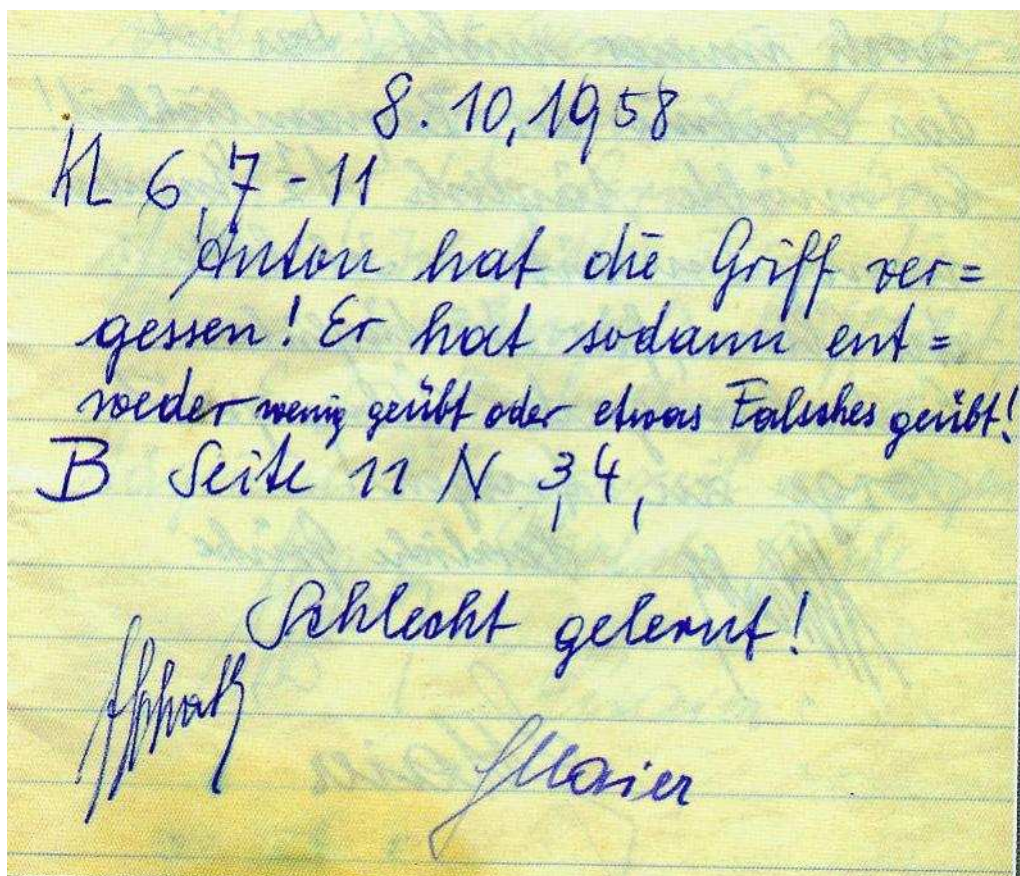 8.10,1958
Kl 6,7-11
Anton hat die Griff ver=
gessen! Er hat sodann ent=
weder wenig geübt oder etwas Falsches geübt!
B Seite 11 N 3,4,
Schlecht gelernt!
Maier